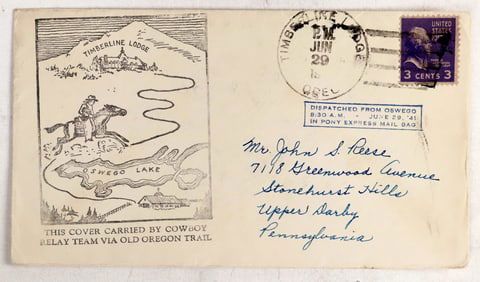 TIMBERLINE LODGE
OSWEGO LAKE
THIS COVER CARRIED BY COWBOY
RELAY TEAM VIA OLD OREGON TRAIL
TIMBERLINE LODGE
P.M.
JUN
29
OREG.
UNITED STATES
POSTAGE
3 CENTS 3
DISPATCHED FROM OSWEGO
8:30 A.M. - JUNE 29, '41
IN PONY EXPRESS MAIL BAG
Mr. John S. Reese
7118 Greenwood Avenue
Stonehurst Hills
Upper Darby
Pennsylvania